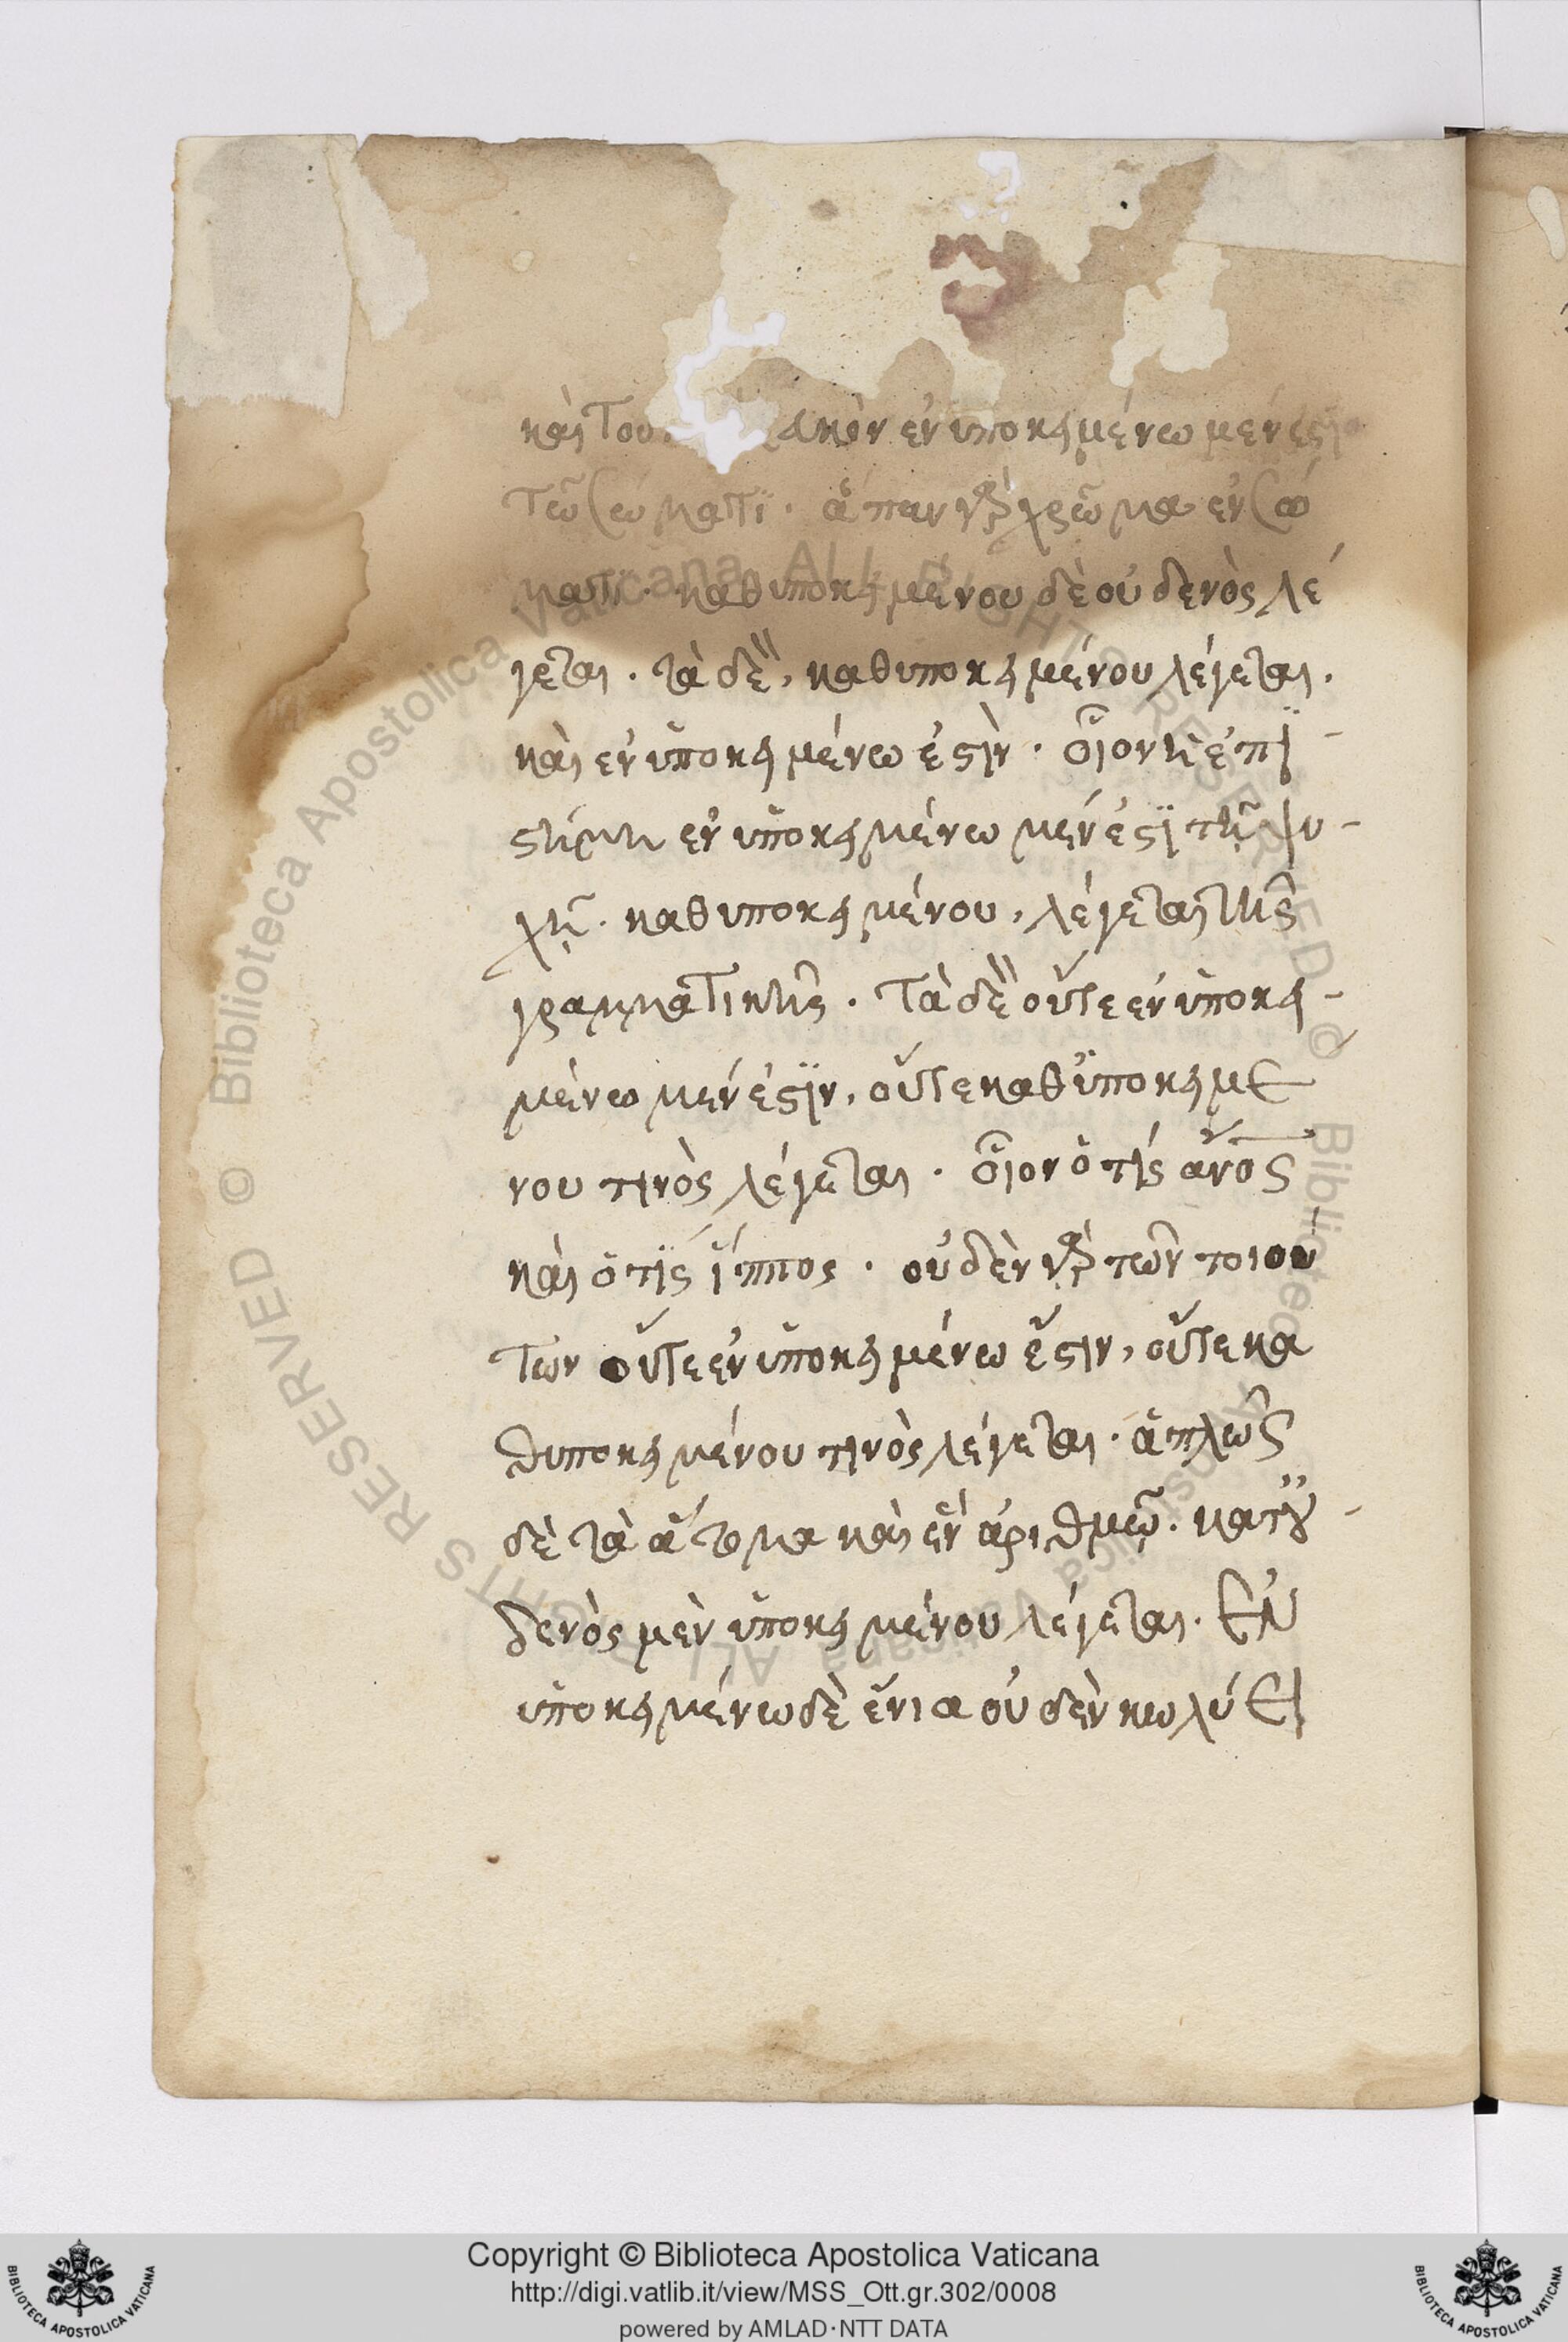 καὶ τοῦ λευκὸν ἐν ὑποκειμένω μέν ἐστι
τῶ σώματϊ · ἅπαν γὰρ χρῶμα ἐν σώ
ματϊ · καθυποκειμένου δὲ οὐδενὸς λέ
γεται · τὰ δὲ, καθυποκειμένου λέγεται ·
καὶ ἐν ὑποκειμένω ἐστὶν · οἷον ἡ ἐπϊ-
στήμη ἐν ὑποκειμένω μέν ἐστϊ τῆ ψυ-
χῆ · καθυποκειμένου, λέγεται τῆς
γραμματικῆς · τὰ δὲ οὔτε ἐν ὑποκει-
μένω μέν ἐστϊν, οὔτε καθ ὑποκειμε
νου τινὸς λέγεται · οἷον ὁ τίς ἄνος
καὶ ὁ τϊς ἵππος · οὐδὲν γὰρ τῶν τοιού
των οὔτε ἐν ὑποκειμένω ἔστιν, οὔτε κα
θυποκειμένου τινὸς λέγεται · ἁπλῶς
δὲ τὰ ἄτομα καὶ ἓν ἀριθμῶ · κατ οὐ-
δενὸς μὲν ὑποκειμένου λέγεται · ἐν
ὑποκειμένω δὲ ἔνια οὐδὲν κωλύει
Copyright © Biblioteca Apostolica Vaticana
http://digi.vatlib.it/view/MSS_Ott.gr.302/0008
powered by AMLAD·NTT DATA